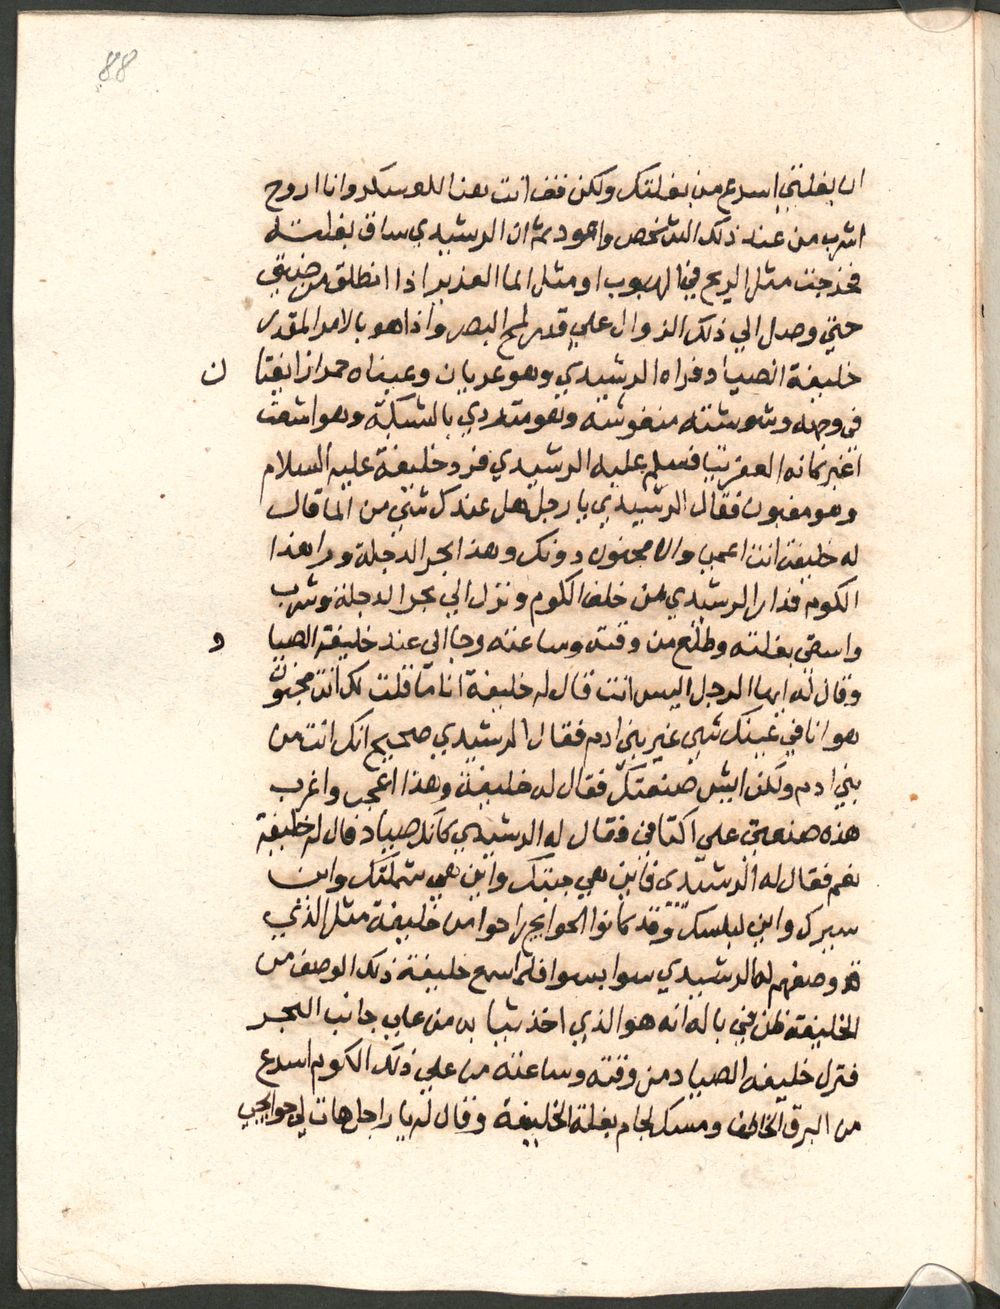 88
ان بغلتي اسرع من بغلتك ولكن فقف انت هنا للعسكر وانا اروح
اشرب من عند ذلك الشخص واعود ثم ان الرشيدي ساق بغلته
فخرجت مثل الريح في الهبوب او مثل الما الغزير اذا انطلق من ضيق
حتي وصل الي ذلك الزوال علي قدر لمح البصر واذا هو بالامر المقدر
خليفة الصياد فراه الرشيدي وهو عريان وعيناه حمر ازانيفتا ن
في وجهه وشوشته منفوشه وهو متردي بالشبكة وهو اشعث
اغبر كانه العفريت فسلم عليه الرشيدي فرد خليفة عليه السلام
وهو مغبون فقال الرشيدي يا رجل هل عندك شي من الما قال
له خليفة انت اعمي والا مجنون دونك وهذا بحر الدجلة ورا هذا
الكوم فدار الرشيدي من خلف الكوم ونزل الي بحر الدجلة وشرب
واسقي بغلته وطلع من وقته وساعته وجا الي عند خليفة الصيا د
وقال له ايها الرجل اليس انت قال له خليفة انا ما قلت لك انت مجنون
هو انا في عينك شي غير بني ادم فقال الرشيدي صحيح انك انت من
بني ادم ولكن ايش صنعتك فقال له خليفة وهذا اعجب واغرب
هذه صنعتي علي اكتافي فقال له الرشيدي كانك صياد قال له خليفة
نعم فقال له الرشيدي فاين هي جبتك واين هي شملتك واين
سيرك واين لبلسك وقد كانوا الحوايج راحوا من خليفة مثل الذي
وصفهم له الرشيدي سوا بسوا فلما سمع خليفة ذلك الوصف من
الخليفة ظن في باله انه هو الذي اخذ ثيابه من علي جانب البحر
فنزل خليفه الصياد من وقته وساعته من علي ذلك الكوم اسرع
من البرق الخاطف ومسك لجام بغلة الخليفة وقال له يا راجل هات لي حوايجي